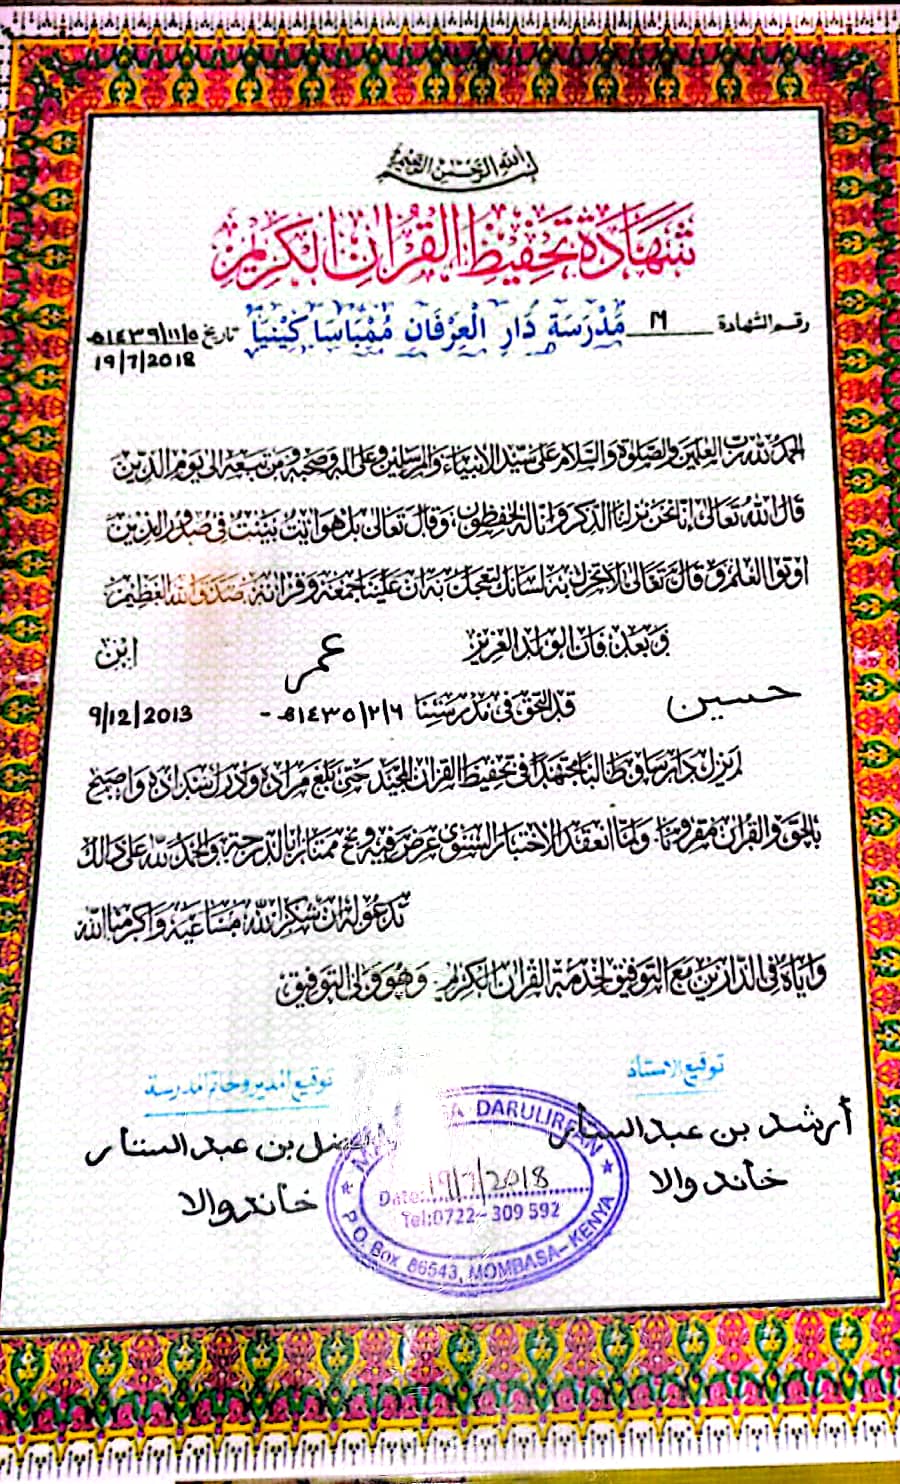 بسم الله الرحمن الرحيم
شهادة تحفيظ القران الكريم
رقم الشهادة مدرسة دار العرفان ممباسا كينيا تاريخ ١٤٣٩/١١/٥هـ
19/7/2018
الحمد لله رب العلمين والصلوة والسلام على سيد الانبياء والمرسلين وعلى اله وصحبه ومن تبعه الى يوم الدين
قال الله تعالى انا نحن نزلنا الذكر وانا له لحفظون، وقال تعالى بل هو ايت بينت في صدور الذين
اوتوا العلم وقال تعالى لا تحرك به لسانك لتعجل به ان علينا جمعه وقرانه صدق الله العظيم
وبعد: فان الولد العزيز عمر ابن
حسين قد التحق في مدرستنا ١٤٣٥/٢/٦هـ - 9/12/2013
لم يزل بدار ساق طالبا مجتهدا في تحفيظ القران المجيد حتى بلغ مراده وادرك سداده واصبح
القران ولما انعقد الاختبار السنوي عرض فيه ونجح ممتازا بالدرجة والحمد لله على ذالك
ندعو له ان شكر الله مساعيه واكرمنا الله
واياه في الدارين مع التوفيق لخدمة القران الكريم وهو ولي التوفيق
توقيع الاستاذ
توقيع المدير وخاتم المدرسة
أرشد بن عبد الستار
خاندوالا
بن عبد الستار
خاندوالا
DARULIRFAN
Date: 19/7/2018
Tel:0722-309 592
P.O. Box 86543, MOMBASA-KENYA